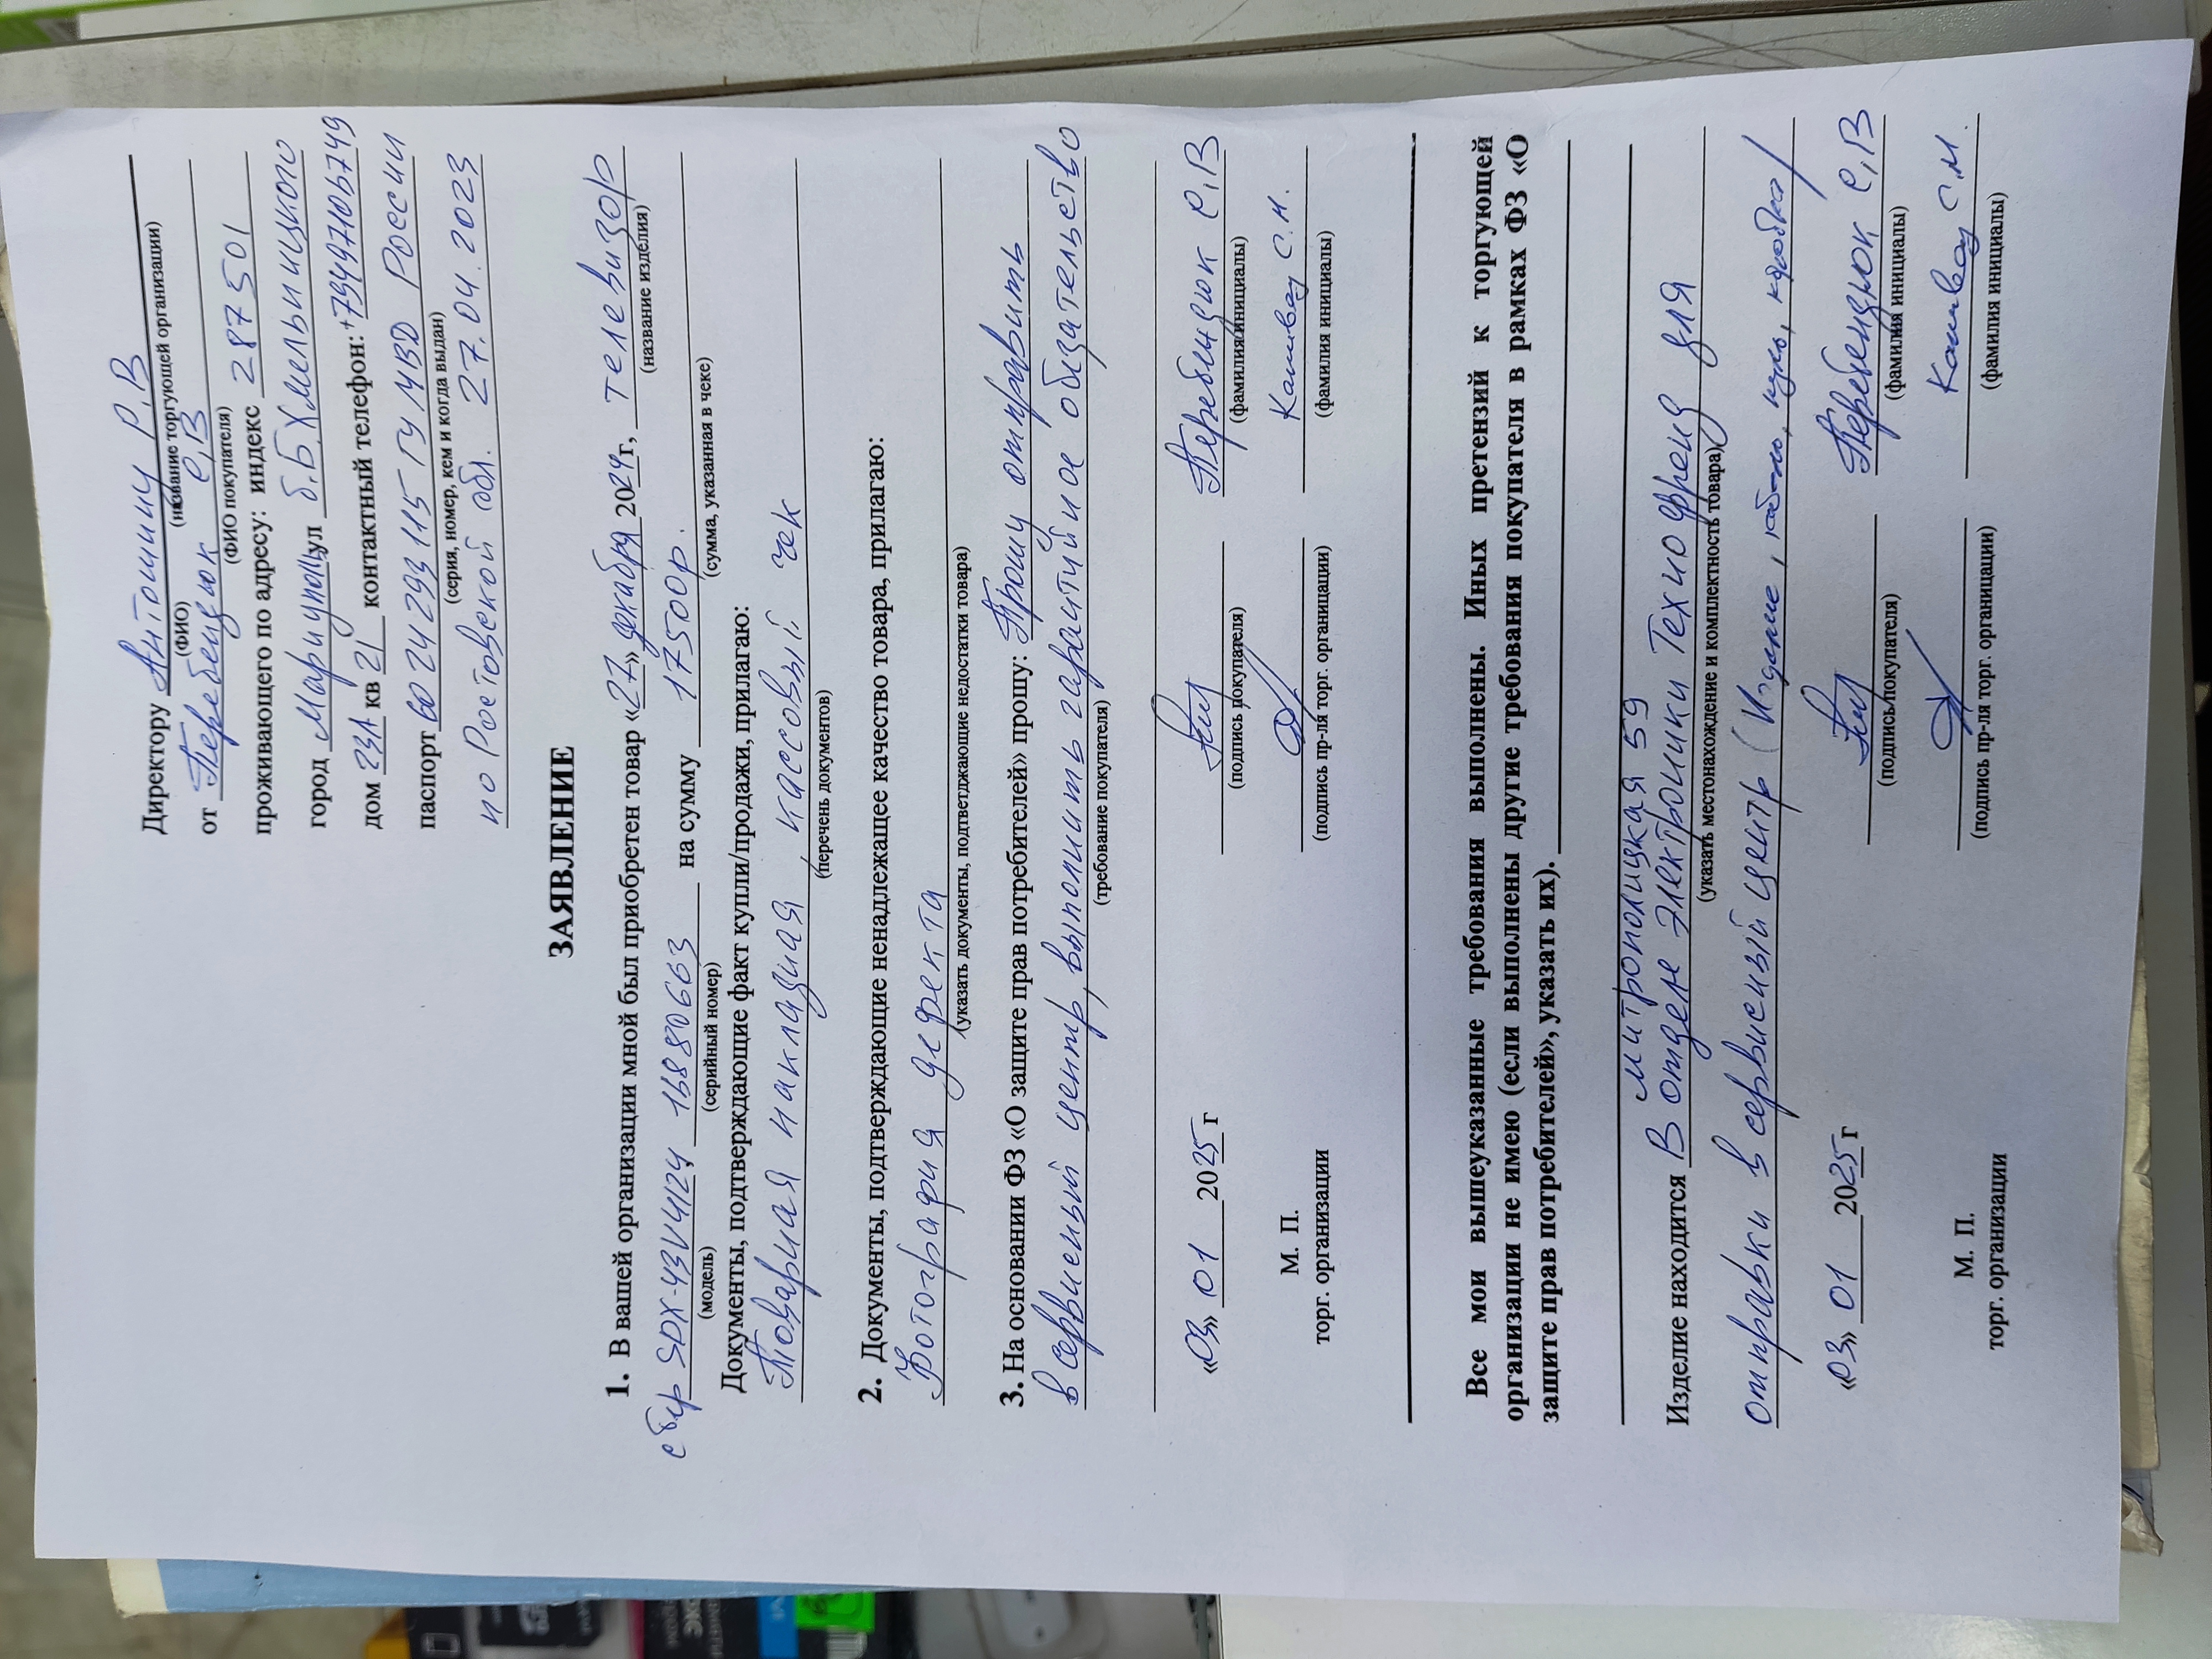 Директору Антошину Р.В
(ФИО) (название торгующей организации)
от Перебенцюк Е,В
(ФИО покупателя)
проживающего по адресу: индекс 287501
город Мариуполь ул б.Б.Хмельницкого
дом 23А кв 21 контактный телефон: +79497106749
паспорт 6024293115 ГУ МВД России
(серия, номер, кем и когда выдан)
по Ростовской обл. 27.04.2023
ЗАЯВЛЕНИЕ
1. В вашей организации мной был приобретен товар «27» декабря 2024г, телевизор
(название изделия)
SDX-43V4124 16880663 на сумму 17500р.
(модель) (серийный номер) (сумма, указанная в чеке)
Документы, подтверждающие факт купли/продажи, прилагаю:
Товарная накладная, кассовый чек
(перечень документов)
2. Документы, подтверждающие ненадлежащее качество товара, прилагаю:
Фотография дефекта
(указать документы, подтветджающие недостатки товара)
3. На основании ФЗ «О защите прав потребителей» прошу: Прошу отправить
в сервисный центр, выполнить гарантийное обязательство
(требование покупателя)
«03» 01 2025г Перебенцюк Е,В
(подпись покупателя) (фамилия инициалы)
М. П. С.М.
торг. организации (подпись пр-ля торг. организации) (фамилия инициалы)
Все мои вышеуказанные требования выполнены. Иных претензий к торгующей
организации не имею (если выполнены другие требования покупателя в рамках ФЗ «О
защите прав потребителей», указать их).
митрополицкая 59
Изделие находится В отделе Электроники Технофренд для
(указать местонахождение и комплектность товара)
отправки в сервисный центр (Изделие, кабель, пульт, коробка)
«03» 01 2025г Перебенцюк Е,В
(подпись покупателя) (фамилия инициалы)
М. П. С.М.
торг. организации (подпись пр-ля торг. организации) (фамилия инициалы)